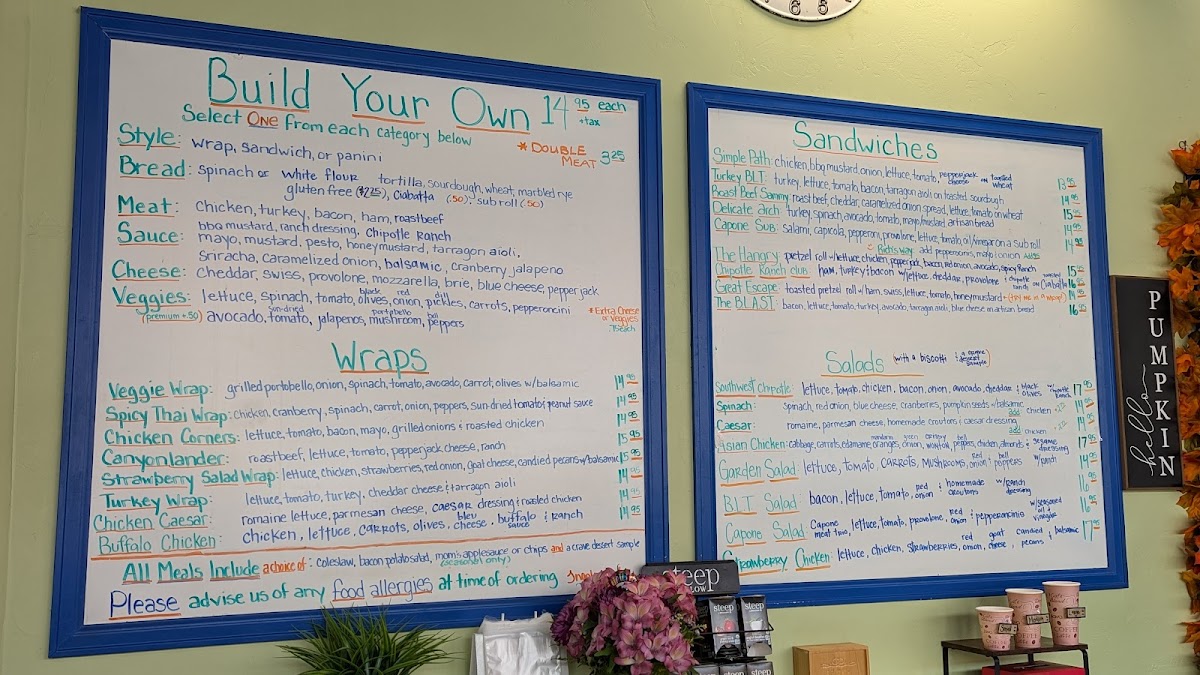 Build Your Own 14 95 each
+tax
Select ONE from each category below
* DOUBLE MEAT 3 25
Style: wrap, sandwich, or panini
Bread: spinach or white flour tortilla, sourdough, wheat, marbled rye
gluten free ($2.25), Ciabatta (.50), sub roll (.50)
Meat: Chicken, turkey, bacon, ham, roast beef
Sauce: bbq mustard, ranch dressing, Chipotle Ranch
mayo, mustard, pesto, honey mustard, tarragon aioli,
Sriracha, caramelized onion, balsamic, cranberry jalapeno
Cheese: cheddar, swiss, provolone, mozzarella, brie, blue cheese, pepper jack
Veggies: lettuce, spinach, tomato, black olives, red onion, dill pickles, carrots, pepperoncini
(premium +.50) avocado, sun-dried tomato, jalapenos, portobello mushroom, bell peppers
* Extra Cheese or Veggies .75 each
Wraps
Veggie Wrap: grilled portobello, onion, spinach, tomato, avocado, carrot, olives w/ balsamic 14 95
Spicy Thai Wrap: chicken, cranberry, spinach, carrot, onion, peppers, sun-dried tomato & peanut sauce 14 95
Chicken Corners: lettuce, tomato, bacon, mayo, grilled onions & roasted chicken 14 95
Canyonlander: roast beef, lettuce, tomato, pepperjack cheese, ranch 15 95
Strawberry Salad Wrap: lettuce, chicken, strawberries, red onion, goat cheese, candied pecans w/ balsamic 15 95
Turkey Wrap: lettuce, tomato, turkey, cheddar cheese & tarragon aioli 14 95
Chicken Caesar: romaine lettuce, parmesan cheese, caesar dressing & roasted chicken 14 95
Buffalo Chicken: chicken, lettuce, carrots, olives, bleu cheese, buffalo sauce & ranch 14 95
All Meals Include a choice of: coleslaw, bacon potato salad, mom's applesauce or chips and a crave dessert sample
(seasonal only)
Please advise us of any food allergies at time of ordering
Sandwiches
Simple Path: chicken, bbq mustard, onion, lettuce, tomato, pepperjack cheese on toasted wheat 13 95
Turkey BLT: turkey, lettuce, tomato, bacon, tarragon aioli on toasted sourdough 14 95
Roast Beef Sammy: roast beef, cheddar, caramelized onion spread, lettuce, tomato on wheat 15 95
Delicate Arch: turkey, spinach, avocado, tomato, mayo/mustard, artisan bread 14 95
Capone Sub: salami, capicola, pepperoni, provolone, lettuce, tomato, oil/vinegar on a sub roll 14 95
Rich's way: add pepperoncinis, mayo & onion
The Hangry: pretzel roll w/ lettuce, chicken, pepper jack, bacon, red onion, avocado, spicy Ranch 15 95
Chipotle Ranch club: ham, turkey & bacon w/ lettuce, cheddar, provolone & chipotle ranch on toasted Ciabatta 16 95
Great Escape: toasted pretzel roll w/ ham, swiss, lettuce, tomato, honey mustard * (try me in a wrap!) 14 95
The BLAST: bacon, lettuce, tomato, turkey, avocado, tarragon aioli, blue cheese on artisan bread 16 95
Salads (with a biscotti & a crave dessert sample)
Southwest Chipotle: lettuce, tomato, chicken, bacon, onion, avocado, cheddar & black olives w/ chipotle ranch 17 95
Spinach: spinach, red onion, blue cheese, cranberries, pumpkin seeds w/ balsamic 14 95
add chicken
Caesar: romaine, parmesan cheese, homemade croutons & caesar dressing 14 95
add chicken
Asian Chicken: cabbage, carrots, edamame, mandarin oranges, green onion, crispy wonton, bell peppers, chicken, almonds & sesame dressing 17 95
Garden Salad: lettuce, tomato, carrots, mushrooms, red onion & bell peppers w/ ranch 14 95
BLT Salad: bacon, lettuce, tomato, red onion & homemade croutons w/ ranch dressing 16 95
Capone Salad: Capone meat trio, lettuce, tomato, provolone, red onion & pepperoncinis w/ seasoned oil & vinegar 16 95
Strawberry Chicken: lettuce, chicken, strawberries, red onion, goat cheese, candied pecans & balsamic 17 95
hello PUMPKIN
steep
steep
steep
steep
steep